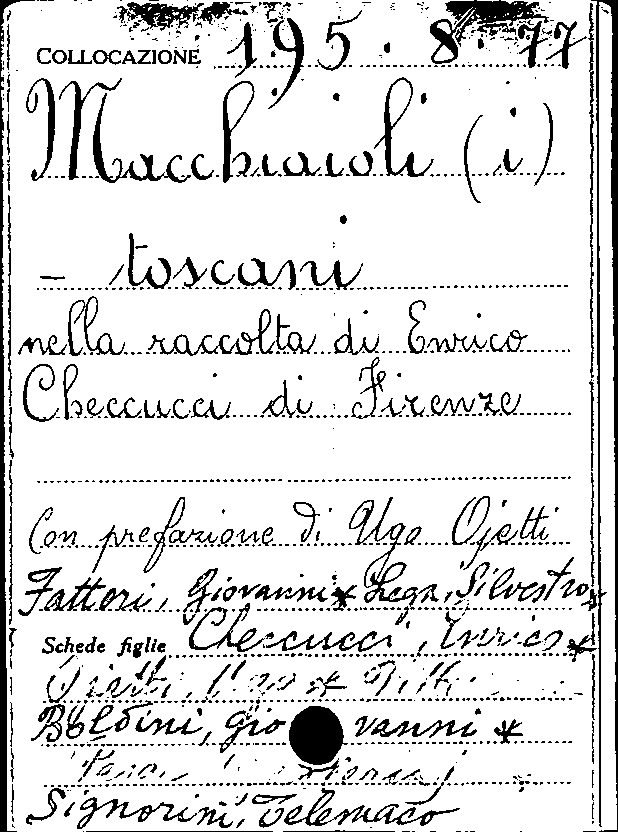 COLLOCAZIONE 195.8.77
Macchiaioli (i)
- toscani
nella raccolta di Enrico
Checcucci di Firenze
Con prefazione di Ugo Ojetti
Fattori, Giovanni * Lega, Silvestro *
Schede figlie Checcucci, Enrico *
Boldini, Giovanni *
Signorini, Telemaco